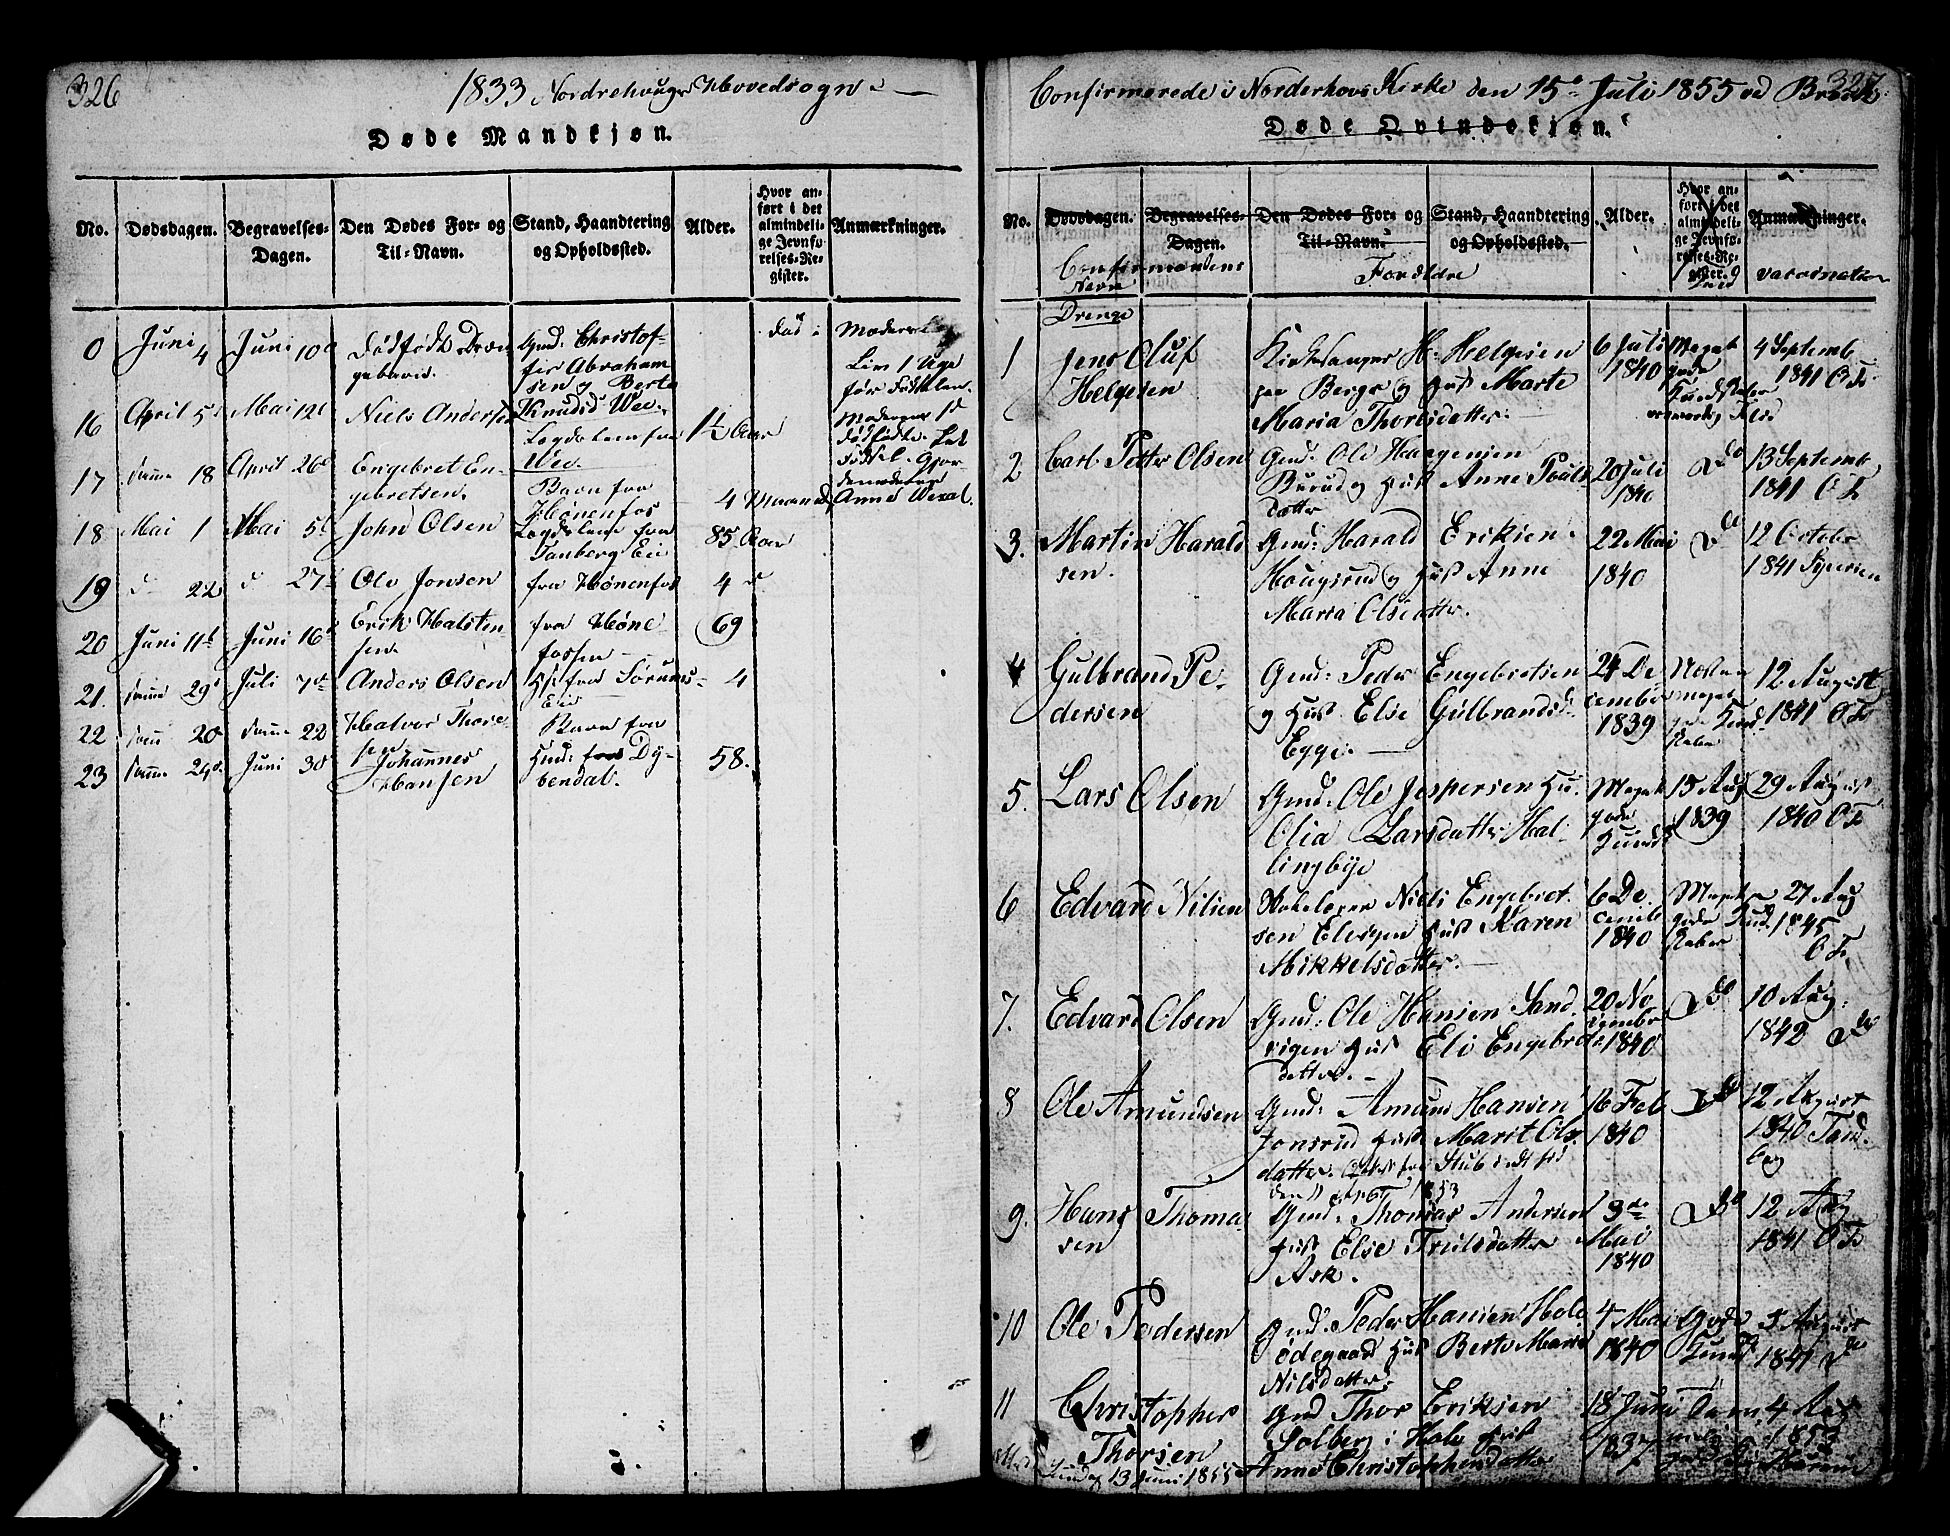 326
1833 Nordrehougs Hovedsogn
Døde Mandkjøn.
No. Dødsdagen. Begravelses-Dagen. Den Dødes For- og Til-Navn. Stand, Haandtering og Opholdssted. Alder. Hvor anført i det almindelige Jevnførelses-Register. Anmærkninger.
0 Juni 4 Juni 10 Dødfødt Dren-
gebarn. Gmd: Christof-
fer Abraham-
sen og Berte
Knudsd Wee.
Moderens
Liv 1 Uge
før Fødselen.
16 April 5 Mai 12 Niels Andersen Logdslem fra
Wee. 1½ Aar
17 samme 18 April 26 Engebret En-
gebretsen. Barn fra
Hønenfos 4 Maaned
Anne Wexal.
18 Mai 1 Mai 5 John Olsen Logdslem fra
Tanberg Eie 85 Aar
19 d 22 d 27 Ole Jonsen fra Hønenfos 4 d
20 Juni 11 Juni 16 Erik Halsten-
sen. fra Høne-
fossen 69
21. samme 29 Juli 7 Anders Olsen fra Sørums-
Eie 4
22 samme 20 samme 22 Halvor Thore-
sen Barn fra
23 samme 24 Juni 30 Johannes
Hansen Gmd: fra Dy-
bendal. 58.
327
Confirmerede i Norderhovs Kirke den 15 Juli 1855 ved
Døde Qvindekjøn.
No. Dødsdagen. Begravelses-Dagen. Den Dødes For- og Til-Navn. Stand, Haandtering og Opholdssted. Alder. Hvor anført i det almindelige Jevnførelses-Register. Anmærkninger.
Confirmandens
Navn Forældre vaccinations
Drenge
1 Jens Oluf
Helgesen Kirkesanger H: Helgesen
paa Berge og Hust Marte
Maria Thorsdatter. 6 Juli
1840 Meget
gode
Kundskaber
4 Septemb
1841 O F
2 Carl Petter Olsen Gmd: Ole Haagensen
Burud og Hust Anne Pouls
datter 20 Juli
1840 Do 13 Septemb
1841 O F
3. Martin Harald
sen. Gmd: Harald Eriksen
Hougsrud og Hust Anne
Maria Olsdatter. 22 Mai
1840 Do 12 October
1841
4 Gulbrand Pe-
dersen Gmd: Peder Engebretsen
og Hust Else Gulbrandsd
Egge. 24 De
cember
1839 Næsten
meget
gode Kund-
skaber 12 August
1841 O F
5. Lars Olsen Gmd: Ole Jespersen Hu:
Olia Larsdatter Hal-
lingbye Meget
gode
Kunds 15 Aug
1839 29 August
1840 O F
6 Edvard Nilsen Niels Engebret
sen Hust Karen
Mikkelsdatter. 6 De
cemb
1840 Meget
gode Kund
skaber 27 Aug
1845
O F
7. Edvard Olsen Gmd: Ole Hansen Sand
vigen Hust Eli Engebrets
datter. 20 No
vember
1840 Do 10 Aug:
1842 Do
8 Ole Amundsen Gmd: Amund Hansen
Jonsrud Hust Marit Ols
datter.
1853 16 Feb
1840 Do 12 August
1840 Tand
berg
9. Hans Thoma
sen Gmd: Thomas Andersen
Hust Else Trulsdatter
Ask. 3die
Mai
1840 Do 12 Aug
1841 O F
10 Ole Pedersen Gmd: Peder Hansen Hole
Ødegaard Hust Berte Marie
Nilsdatter 4 Mai
1840 Gode
Kunds 5 August
1841 Do
11 Christopher
Thorsen Gmd Thor Eriksen
Solberg i Hole Hust
Anne Christophersdatter 18 Juni
1837 4 Aug
1853
13 Juni 1855